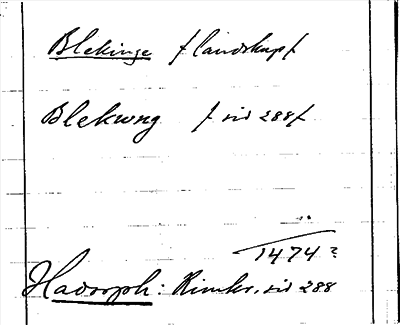 Blekinge /landskap/
Blekwng / sid 288/
1474?
Hadorph: Rimkr. sid 288